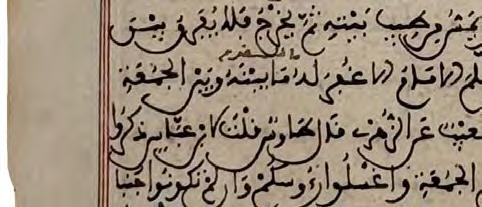 يَمَسُّ مِن طِيبِ بَيْتِهِ ثُمَّ يَخْرُجُ فَلَا يُفَرِّقُ بَيْنَ
الامَامُ الا غُفِرَ لَهُ مَا بَيْنَهُ وَبَيْنَ الجُمُعَةِ
شعَيْبٌ عَنِ الزُّهْرِيِّ قَالَ طَاوُسٌ قُلْتُ لابْنِ عَبَّاسٍ ذَكَرُوا
الجُمُعَةِ وَاغْسِلُوا رُءُوسَكُمْ وَإِن لَمْ تَكُونُوا جُنُبًا